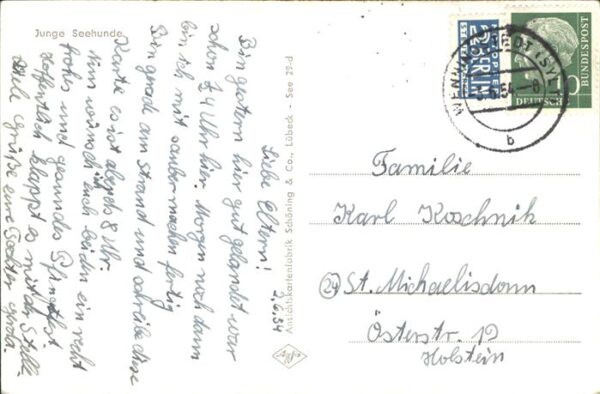 Junge Seehunde
2.6.54
Liebe Eltern!
Bin gestern hier gut gelandet war
schon ¾ 4 Uhr hier. Morgen noch dann
bin ich mit saubermachen fertig
Bin grade am Strand und schreibe diese
Karte es ist abends 8 Uhr.
Nun wünsch ich euch beiden ein recht
frohes und gesundes Pfingstfest
hoffentlich klappt es mit der Stelle
Viele Grüße eure Tochter
Ansichtskartenfabrik Schöning & Co., Lübeck - See 29-d
NOTOPFER
2 BERLIN
STEUERMARKE
DEUTSCHE
BUNDESPOST
10
WENNINGSTEDT (SYLT)
.6.54-8
b
Familie
Karl Koschnik
(24) St. Michaelisdonn
Österstr. 19
Holstein